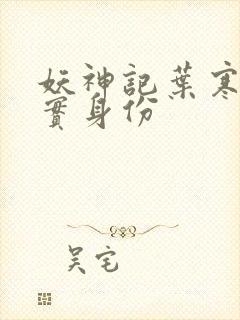 妖神記葉寒
實身份
吴宅